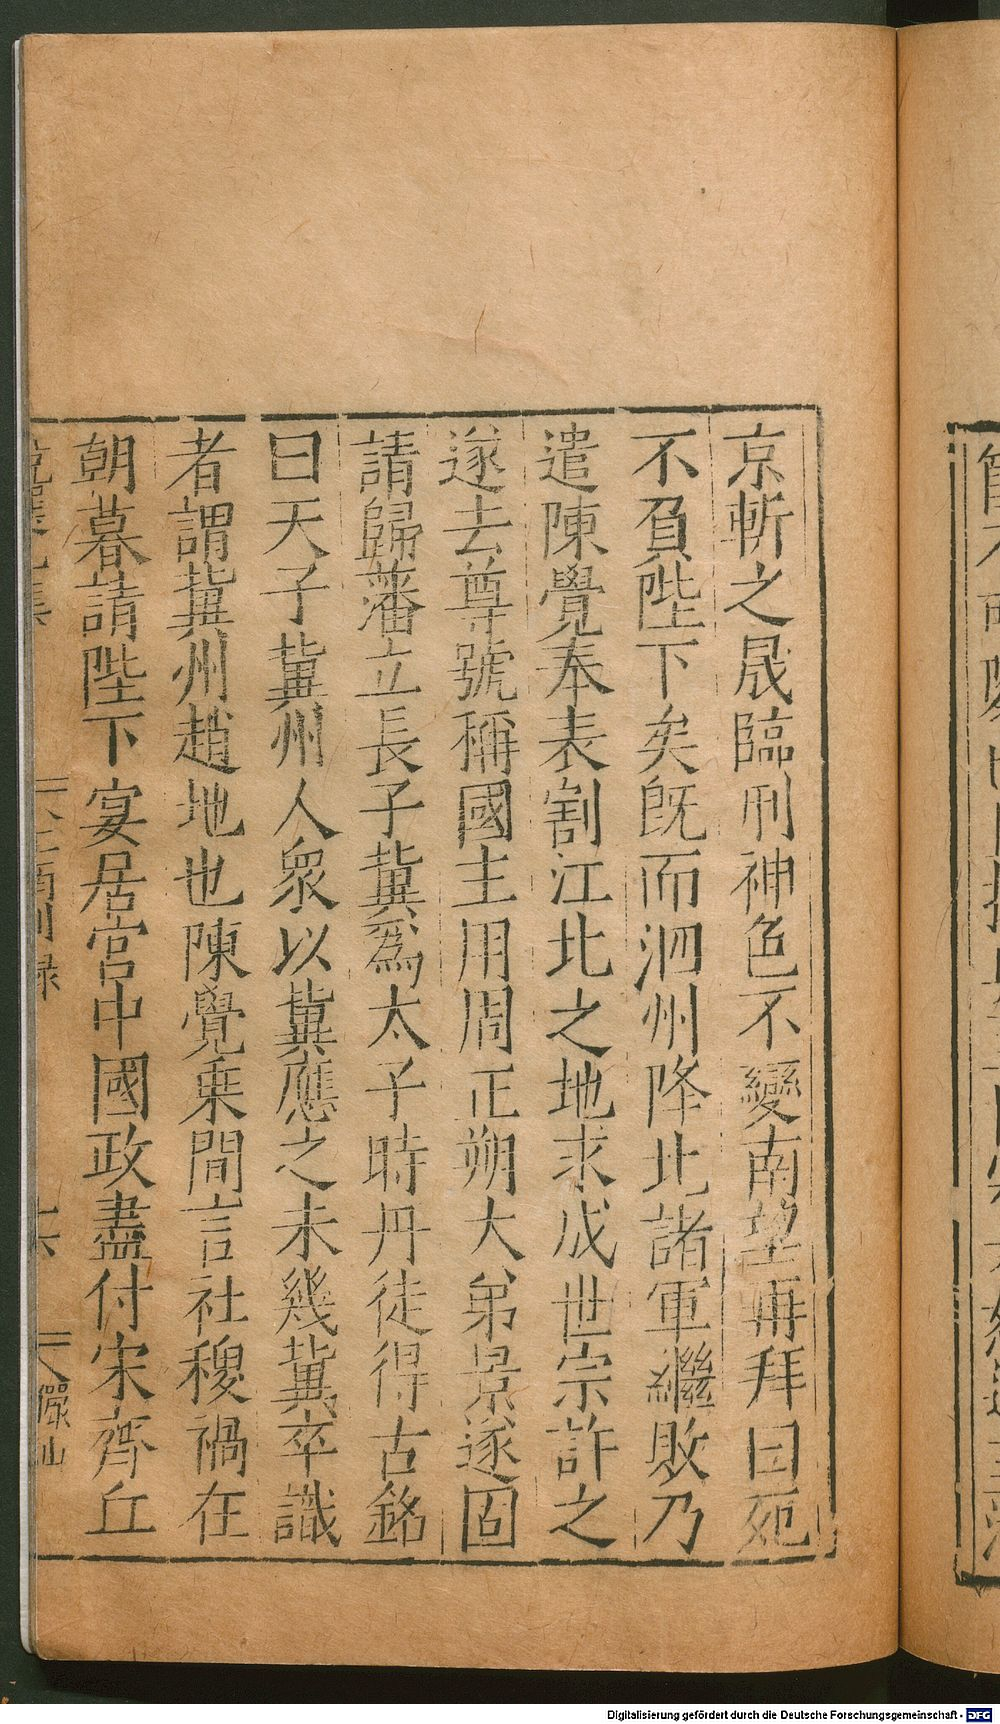 京斬之晟臨刑神色不變南望再拜曰死
不負陛下矣既而泗州降北諸軍繼敗乃
遣陳覺奉表割江北之地求成世宗許之
遂去尊號稱國主用周正朔大弟景遂固
請歸藩立長子冀爲太子時丹徒得古銘
曰天子冀州人衆以冀應之未幾冀卒識
者謂冀州趙地也陳覺乗間言社稷禍在
朝暮請陛下宴居宮中國政盡付宋齊丘
Digitalisierung gefördert durch die Deutsche Forschungsgemeinschaft - DFG